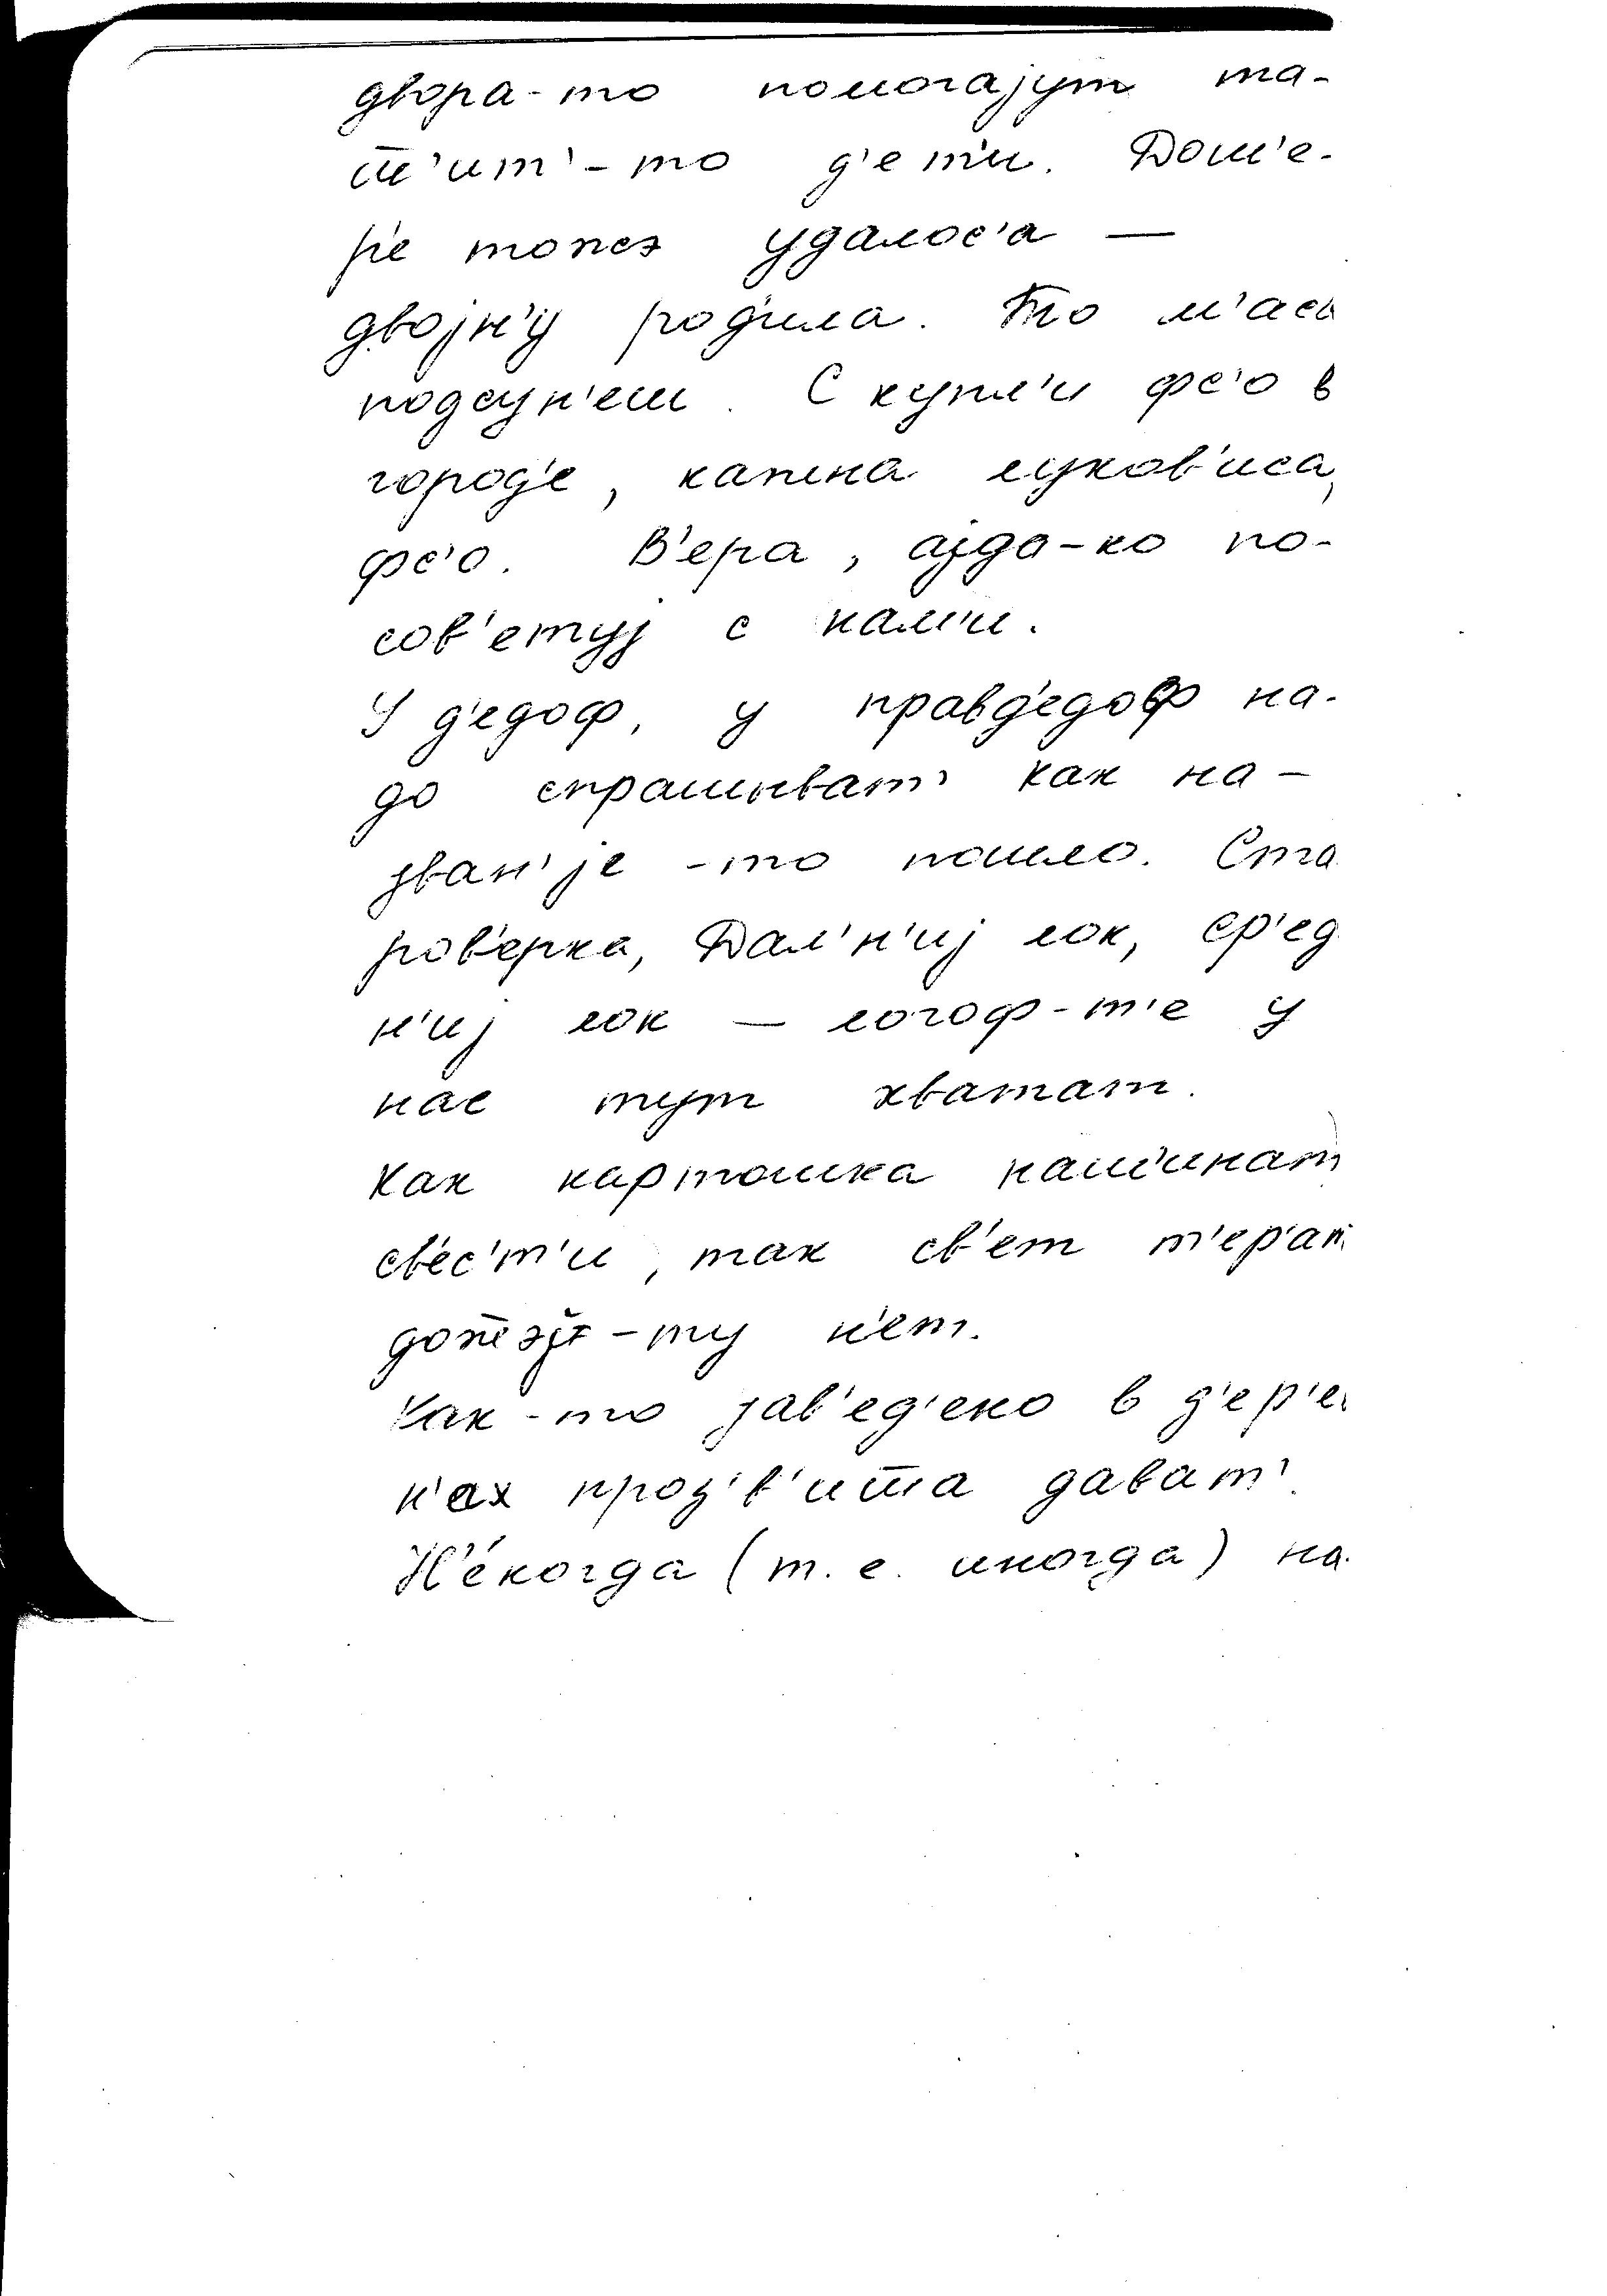 двора-то помогајут та-
ш'ит'-то д'ет'и. Дош'е-
р'е тожэ удалос'а —
двојн'у род'ила. То м'аса
подсун'еш. Скупл'и фс'о в
город'е, капна луков'иса,
фс'о. В'ера, ајда-ко по-
сов'етуј с нам'и.
У д'едоф, у правд'едоф на-
до спрашыват' как на-
зван'је-то пошло. Ста
ров'ерка, Дал'н'иј лок, ср'ед
н'иј лок — логоф-т'е у
нас тут хватат.
Как картошка наш'инат
св'ес'т'и, так св'ет т'ер'ат
-ту н'ет.
Как-то зав'ед'ено в д'ер'ев
н'ах проз'в'иш'а дават'.
Н'екогда (т. е. иногда) на